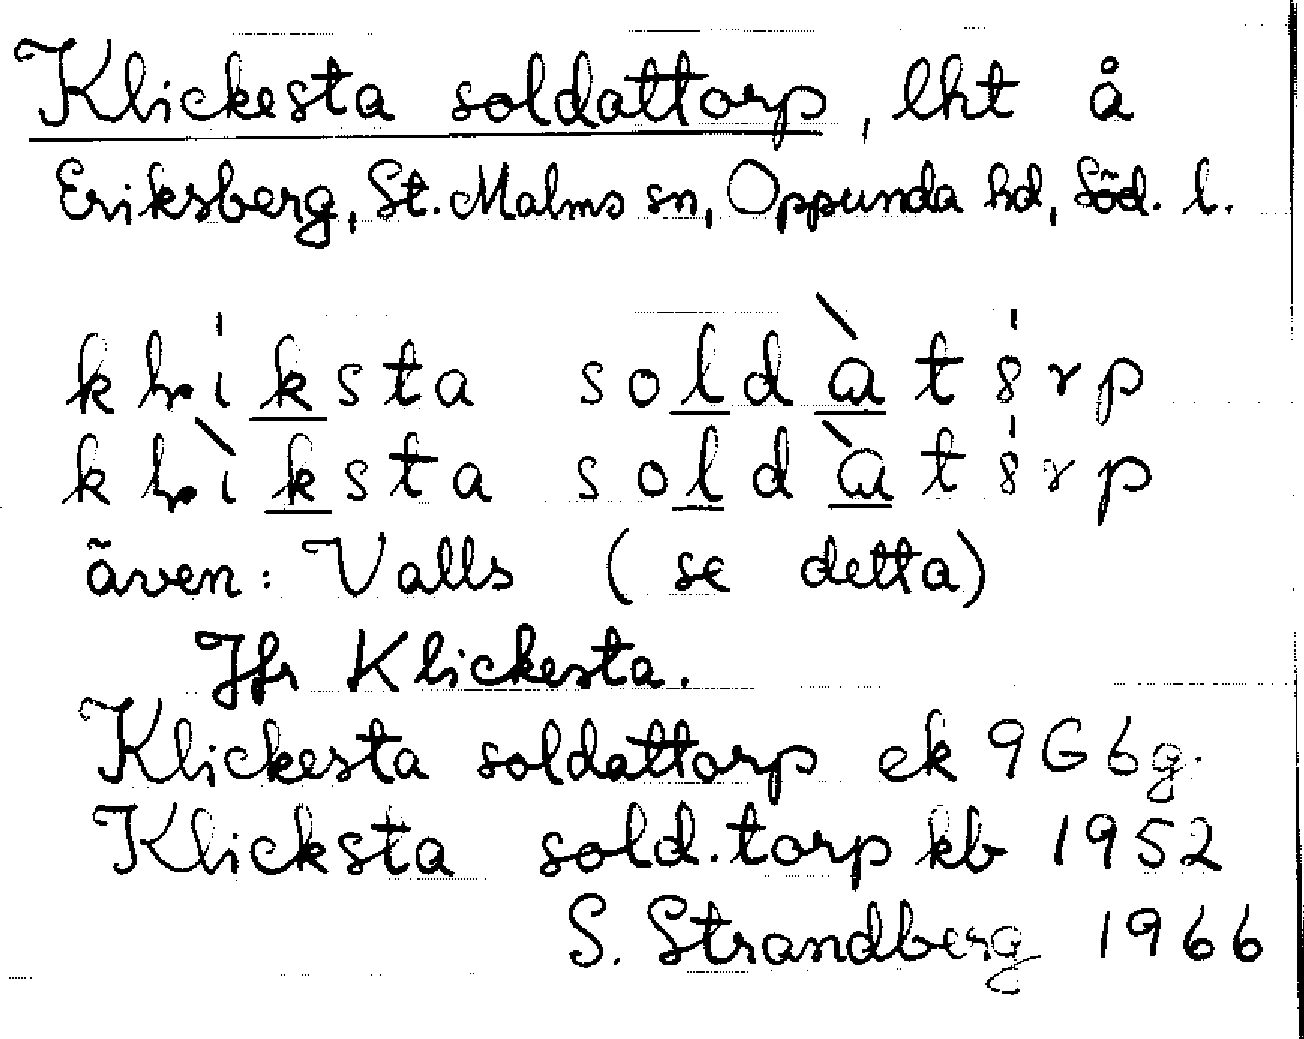 Klickesta soldattorp, lht å
Eriksberg, St. Malms sn, Oppunda hd, Söd. l.
soldàt
soldàt
även: Valls (se detta)
Jfr Klickesta.
Klickesta soldattorp ek 9G6g.
Klicksta sold.torp kb 1952
S. Strandberg 1966